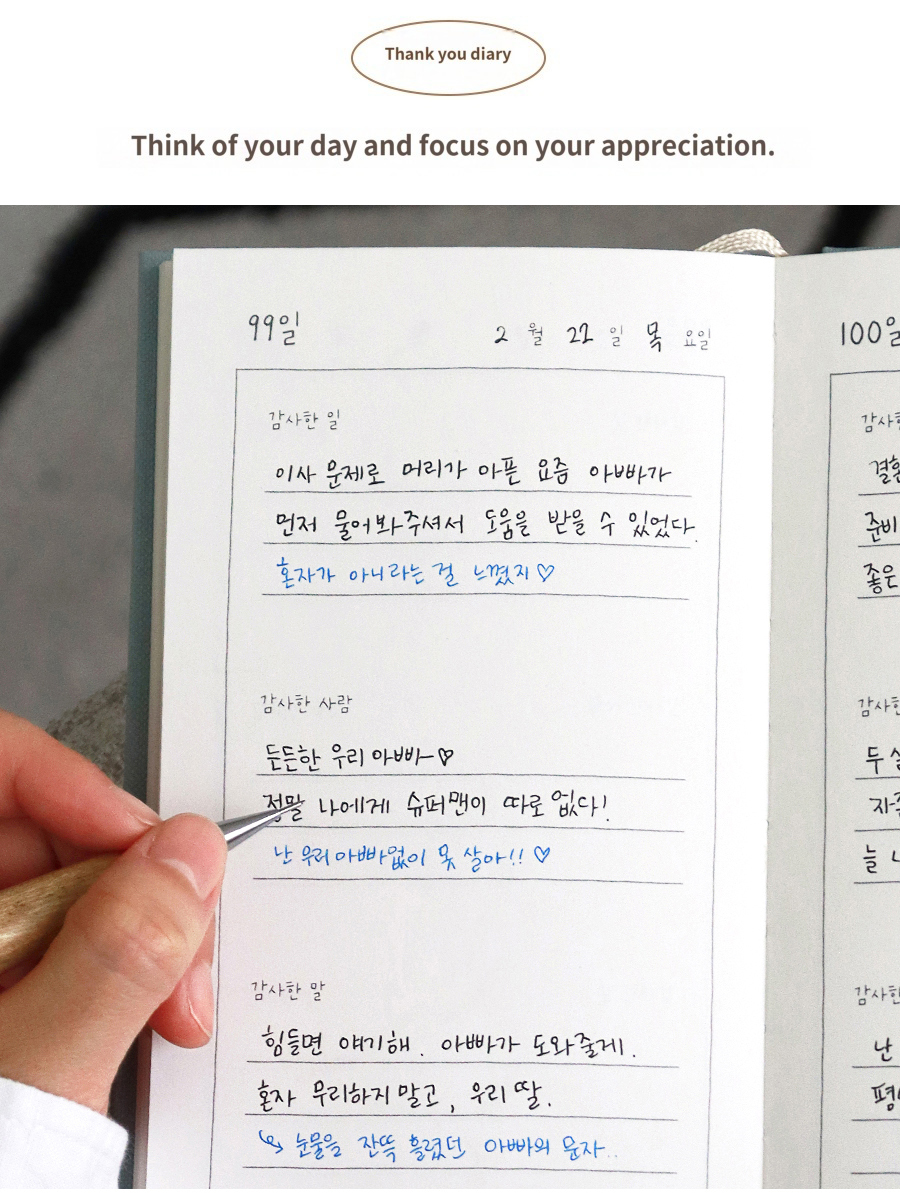 Thank you diary
Think of your day and focus on your appreciation.
99일
2 월 22 일 목 요일
감사한 일
이사 문제로 머리가 아픈 요즘 아빠가
먼저 물어봐주셔서 도움을 받을 수 있었다.
혼자가 아니라는 걸 느꼈지♡
감사한 사람
든든한 우리 아빠~♡
정말 나에게 슈퍼맨이 따로 없다!
난 우리 아빠없이 못 살아!! ♡
감사한 말
힘들면 얘기해. 아빠가 도와줄게.
혼자 무리하지 말고, 우리 딸.
↳ 눈물을 잔뜩 흘렸던 아빠의 문자..
100일
감사한
결혼
준비
좋은
감사한
두
늘
감사한
난